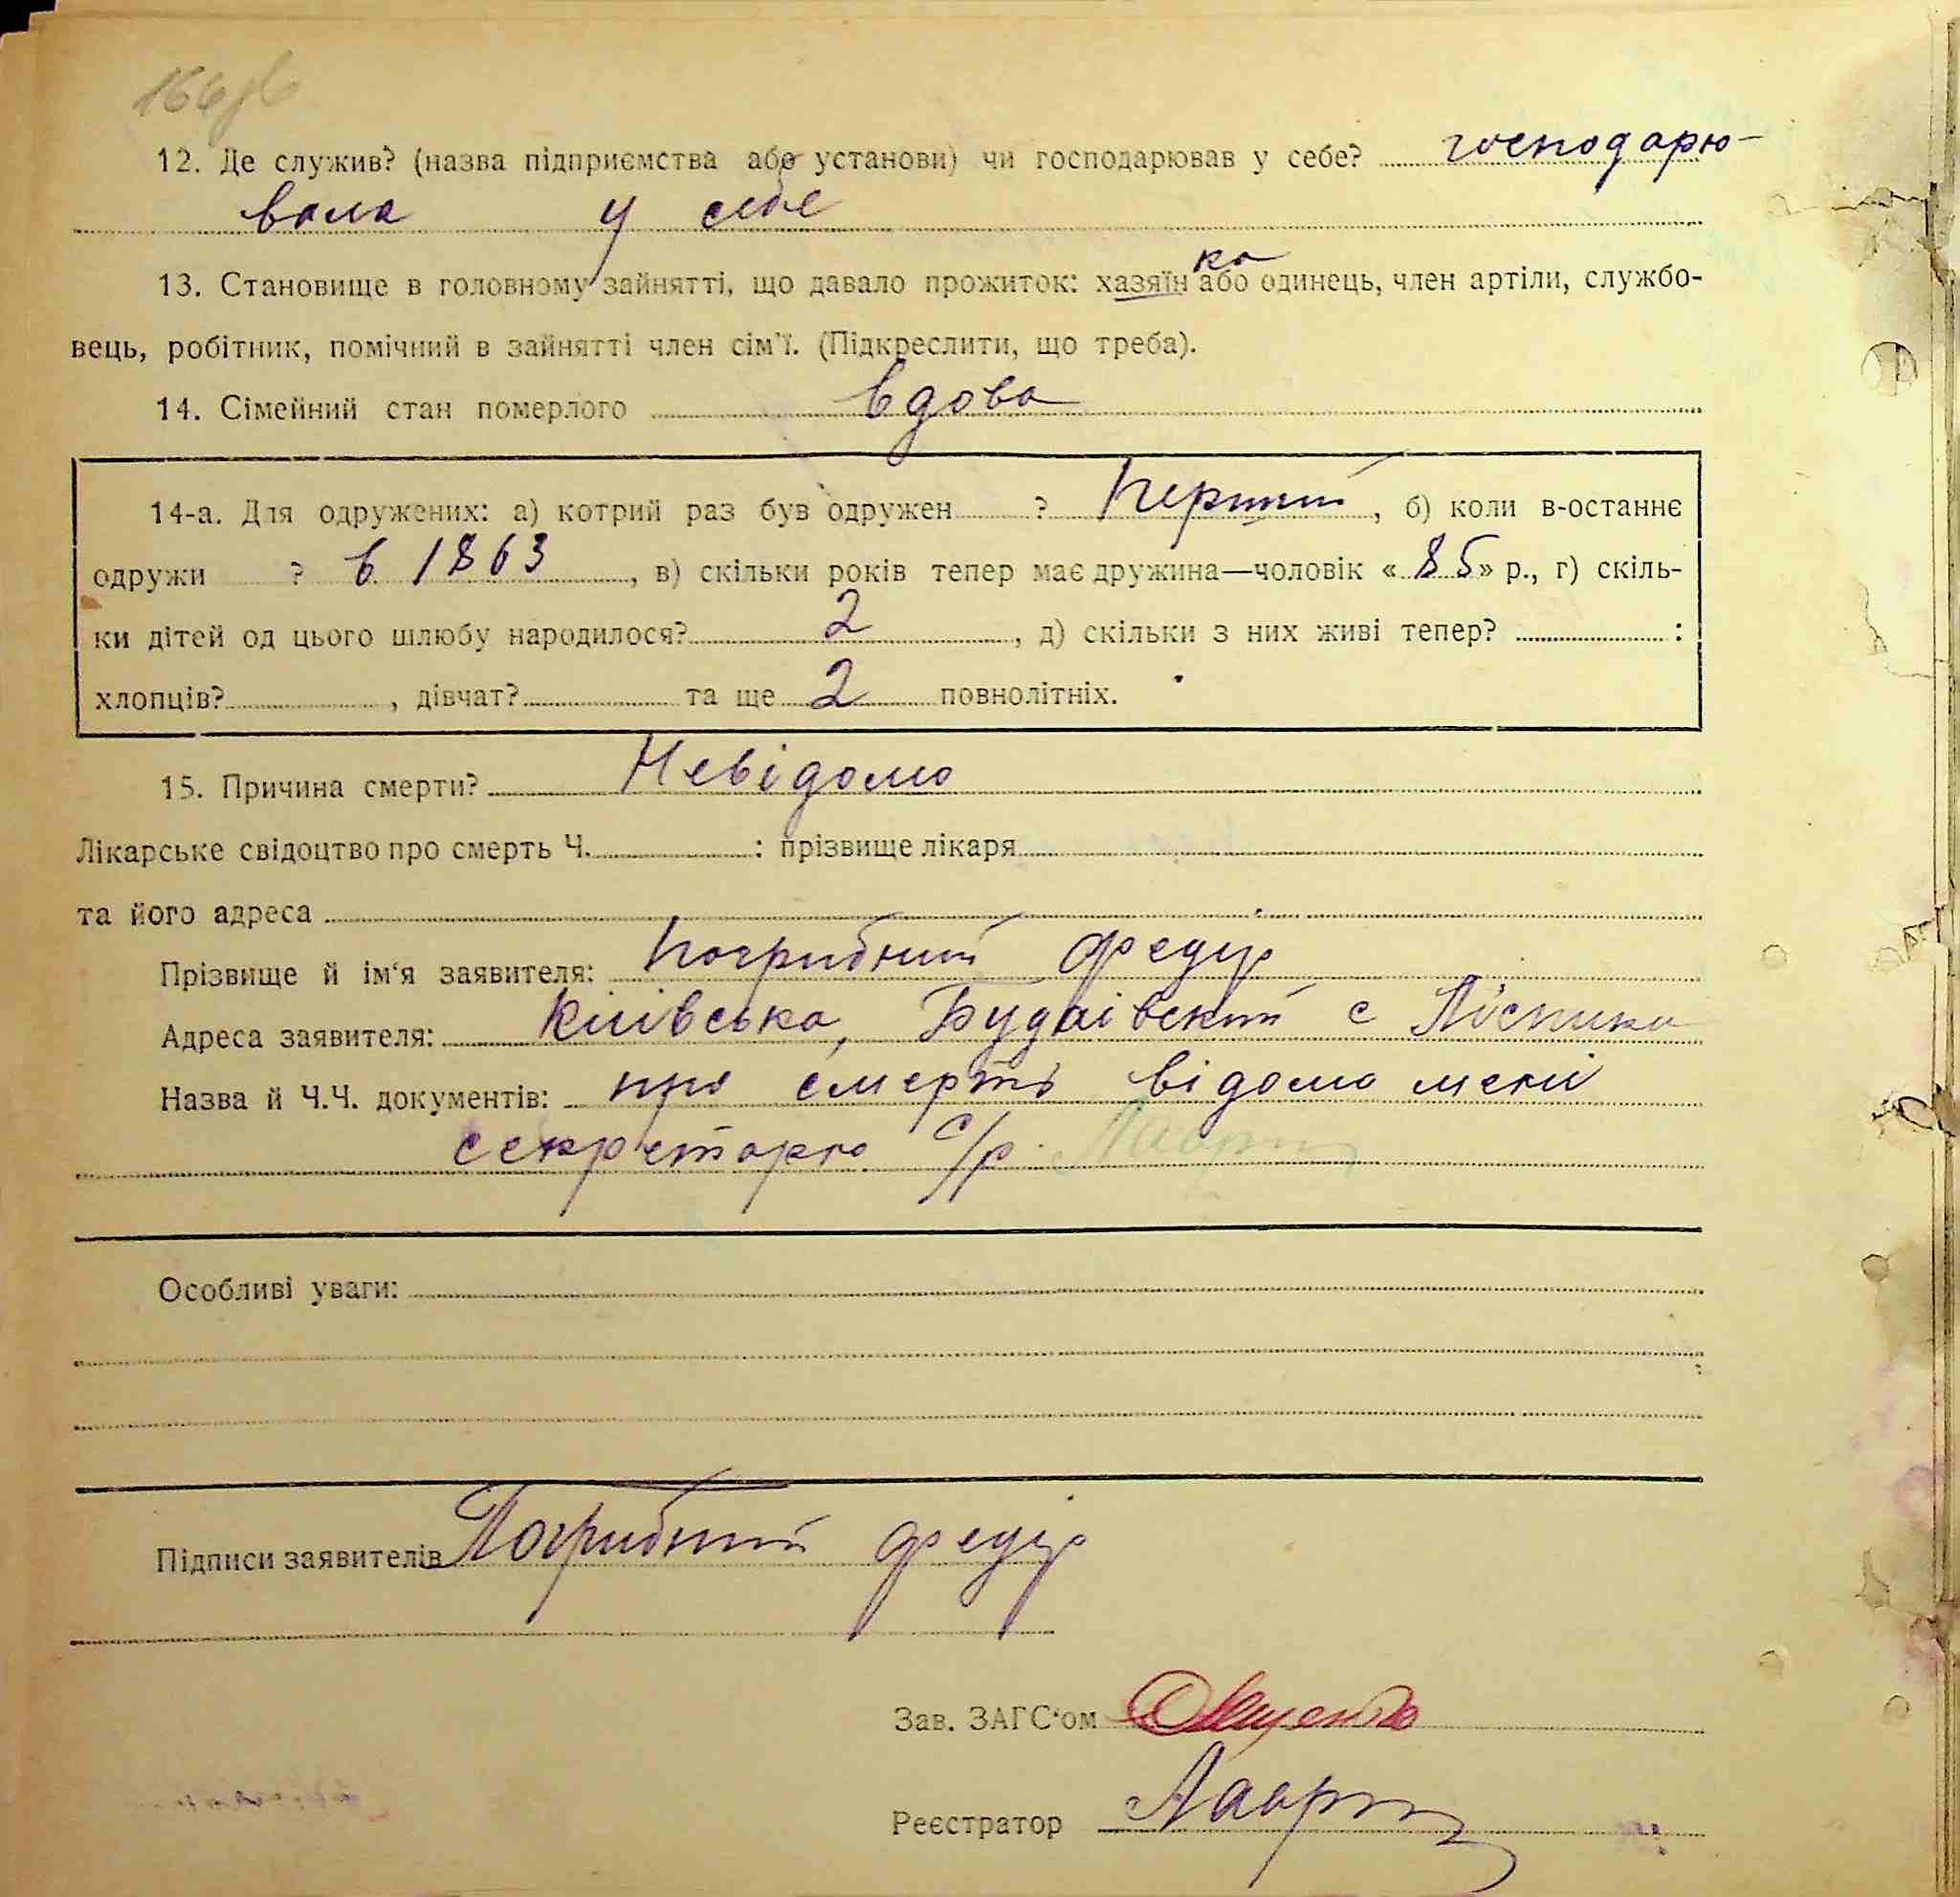 12. Де служив? (назва підприємства або установи) чи господарював у себе? господарю-
вала у себе
ка
13. Становище в головному зайнятті, що давало прожиток: хазяїн або одинець, член артіли, службо-
вець, робітник, помічний в зайнятті член сім'ї. (Підкреслити, що треба).
14. Сімейний стан померлого вдова
14-а. Для одружених: а) котрий раз був одружен ? перший, б) коли в-останнє
одружи ? в 1863, в) скільки років тепер має дружина—чоловік «85» р., г) скіль-
ки дітей од цього шлюбу народилося? 2, д) скільки з них живі тепер? :
хлопців? , дівчат? та ще 2 повнолітніх.
15. Причина смерти? Невідомо
Лікарське свідоцтво про смерть Ч. : прізвище лікаря
та його адреса
Прізвище й ім'я заявителя: Погрибний Федір
Адреса заявителя: Київська, Будаївский с
Назва й Ч.Ч. документів: про смерть відомо мені
секретарю с/р.
Особливі уваги:
Підписи заявителів Погрибний Федір
Зав. ЗАГС'ом
Реєстратор